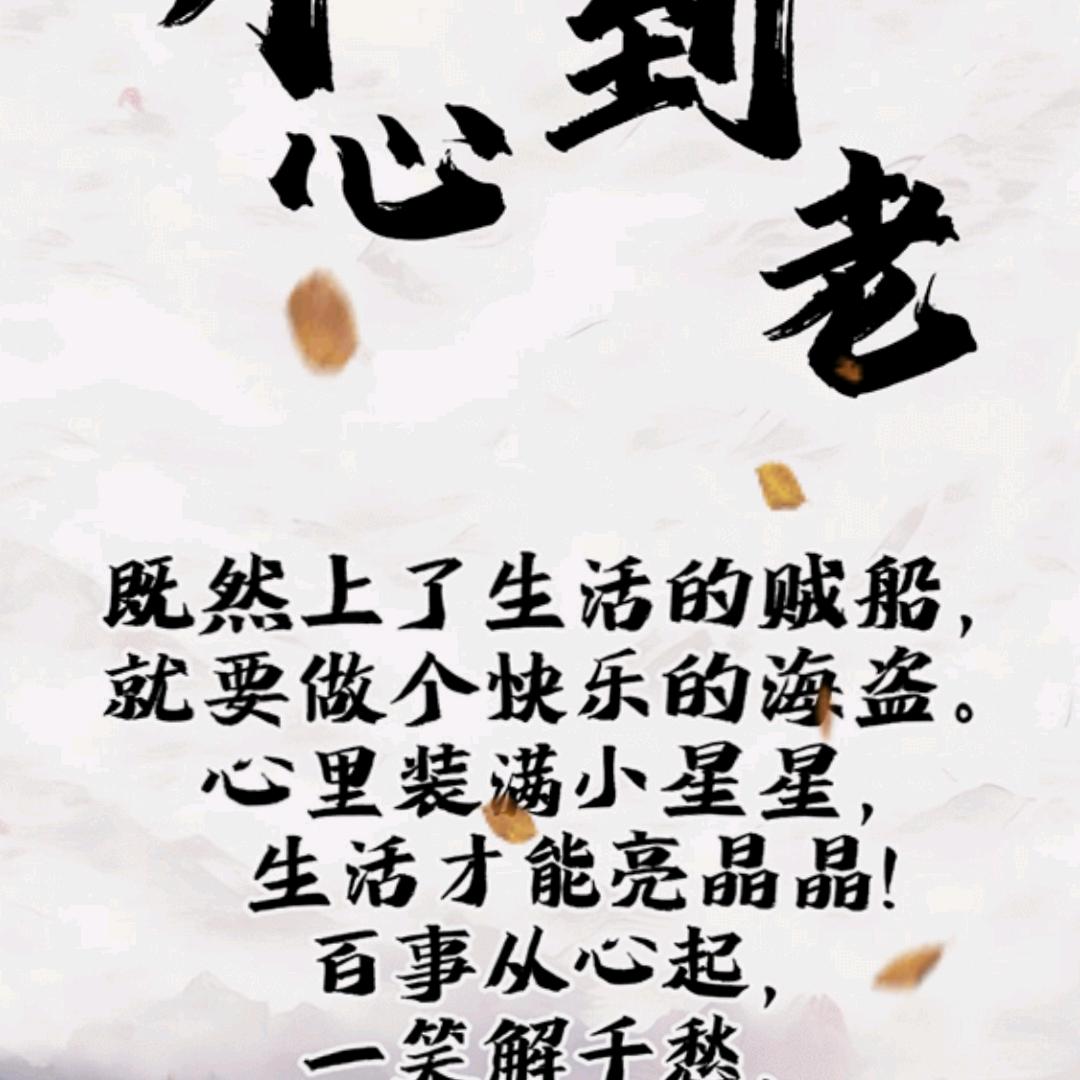 心到
老
既然上了生活的贼船，
就要做个快乐的海盗。
心里装满小星星，
生活才能亮晶晶！
百事从心起，
一笑解千愁，